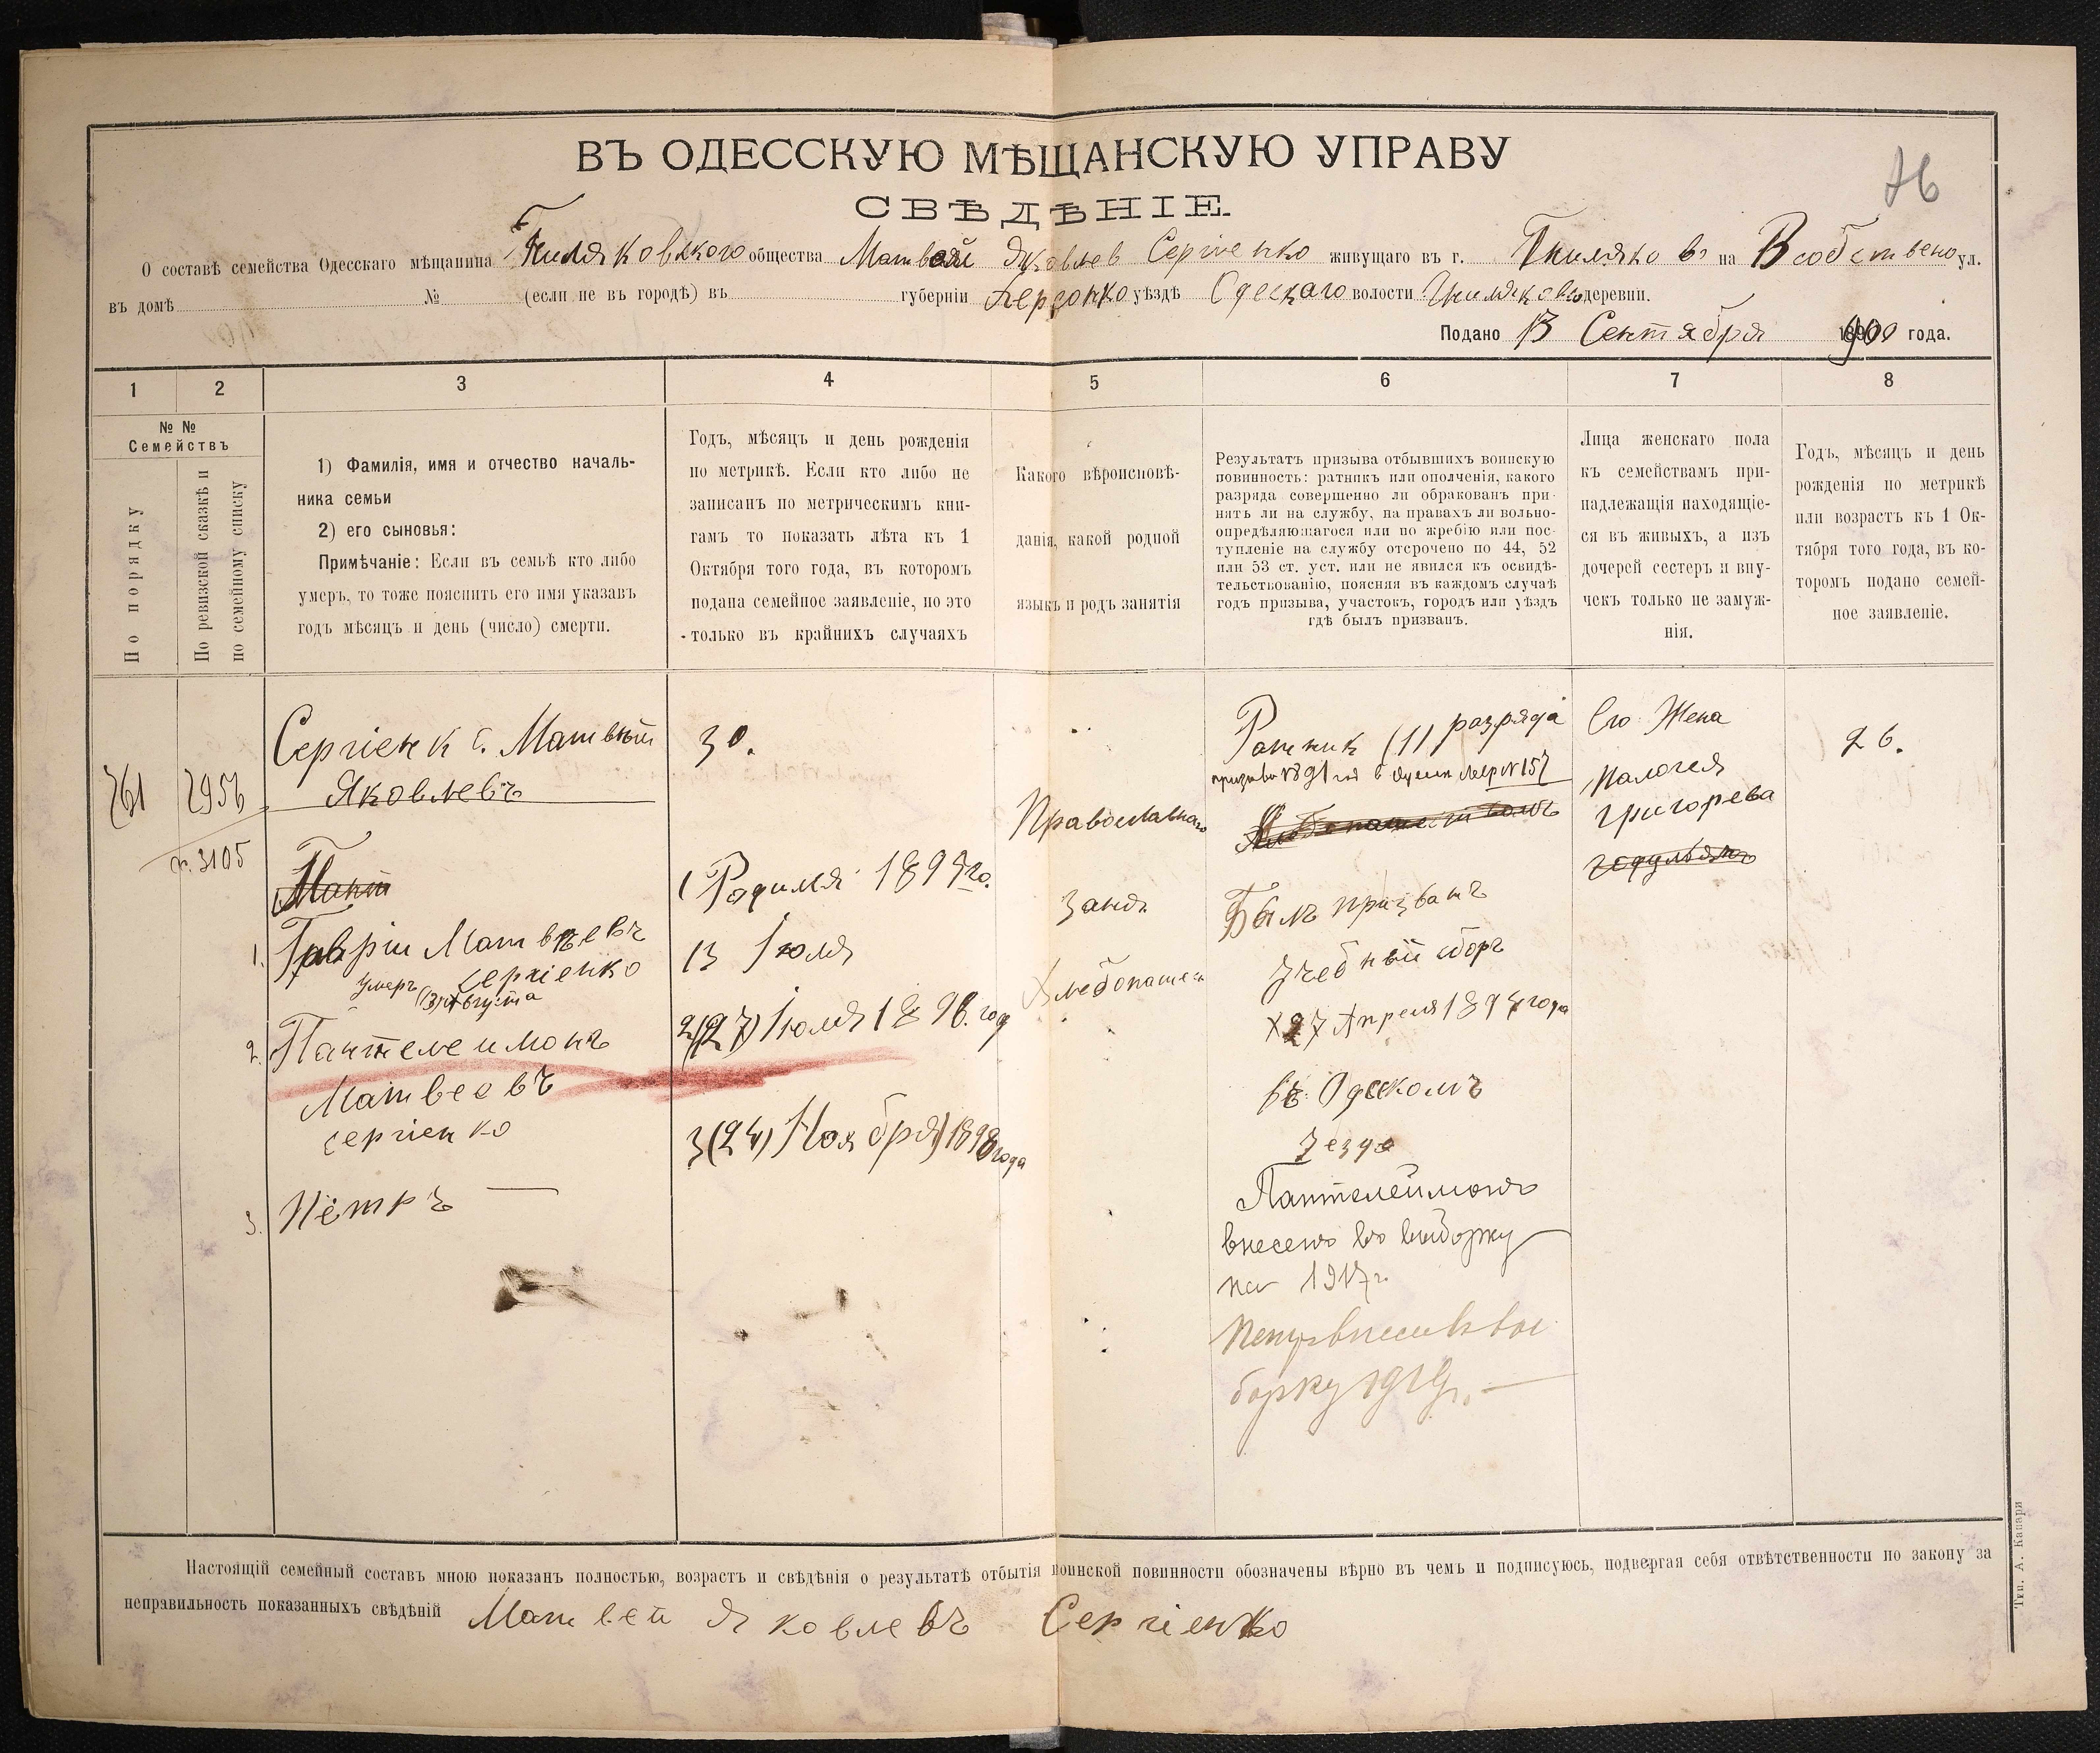 ВЪ ОДЕССКУЮ МѢЩАНСКУЮ УПРАВУ
СВѢДѢНІЕ.
О составѣ семейства Одесскаго мѣщанина Гниляковскаго общества Матвѣй Яковлев Сергіенко живущаго въ г. Гниляково на В собственой ул.
въ домѣ № (если не въ городѣ) въ губерніи Херсонко уѣздѣ Одескаго волости Гниляково деревни.
Подано 13 Сентября 1900 года.
1 2 3 4 5 6 7 8
№ №
Семействъ
По порядку
По ревизской сказкѣ и
по семейному списку
1) Фамилія, имя и отчество началь-
ника семьи
2) его сыновья:
Примѣчаніе: Если въ семьѣ кто либо
умеръ, то тоже пояснить его имя указавъ
годъ мѣсяцъ и день (число) смерти.
Годъ, мѣсяцъ и день рожденія
по метрикѣ. Если кто либо не
записанъ по метрическимъ кни-
гамъ то показать лѣта къ 1
Октября того года, въ которомъ
подана семейное заявленіе, но это
только въ крайнихъ случаяхъ
Какого вѣроисповѣ-
данія, какой родной
языкъ и родъ занятія
Результатъ призыва отбывшихъ воинскую
повинность: ратникъ или ополченія, какого
разряда совершенно ли обракованъ при-
нятъ ли на службу, на правахъ ли вольно-
опредѣляющагося или по жребію или пос-
тупленіе на службу отсрочено по 44, 52
или 53 ст. уст. или не явился къ освидѣ-
тельствованію, поясняя въ каждомъ случаѣ
годъ призыва, участокъ, городъ или уѣздъ
гдѣ былъ призванъ.
Лица женскаго пола
къ семействамъ при-
надлежащія находящіе-
ся въ живыхъ, а изъ
дочерей сестеръ и вну-
чекъ только не замуж-
нія.
Годъ, мѣсяцъ и день
рожденія по метрикѣ
или возрастъ къ 1 Ок-
тября того года, въ ко-
торомъ подано семей-
ное заявленіе.
761
2956
3105
Сергіенк Матвѣй
Яковлевъ
1. Гаврiи Матвѣевъ
Сергіенко
умеръ (13) Августа
2. Пантелеимонъ
Матвеевъ
Сергіенко
3. Пётръ —
30.
(Родился 1895 го.
13 Iюля
2(27) Iюля 1896. год
3(24) Ноября) 1898 года
Православнаго
Заня.
Хлебопашен
Ратник (1) разряда
призыва 1891 год
Былъ призватъ
Учебный сборъ
27 Апреля 1894 года
въ Одескомъ
Уезде
Пантелеймонъ
внесенъ въ выборку
на 1917 г.
Петръ внесен въ вы
борку 1919 г. —
Его Жена
Палогея
Григорева
26.
Настоящій семейный составъ мною показанъ полностью, возрастъ и свѣдѣнія о результатѣ отбытія воинской повинности обозначены вѣрно въ чемъ и подписуюсь, подвергая себя отвѣтственности по закону за
неправильность показанныхъ свѣдѣній Матвей Яковлевъ Сергіенко
Тип. А. Канари